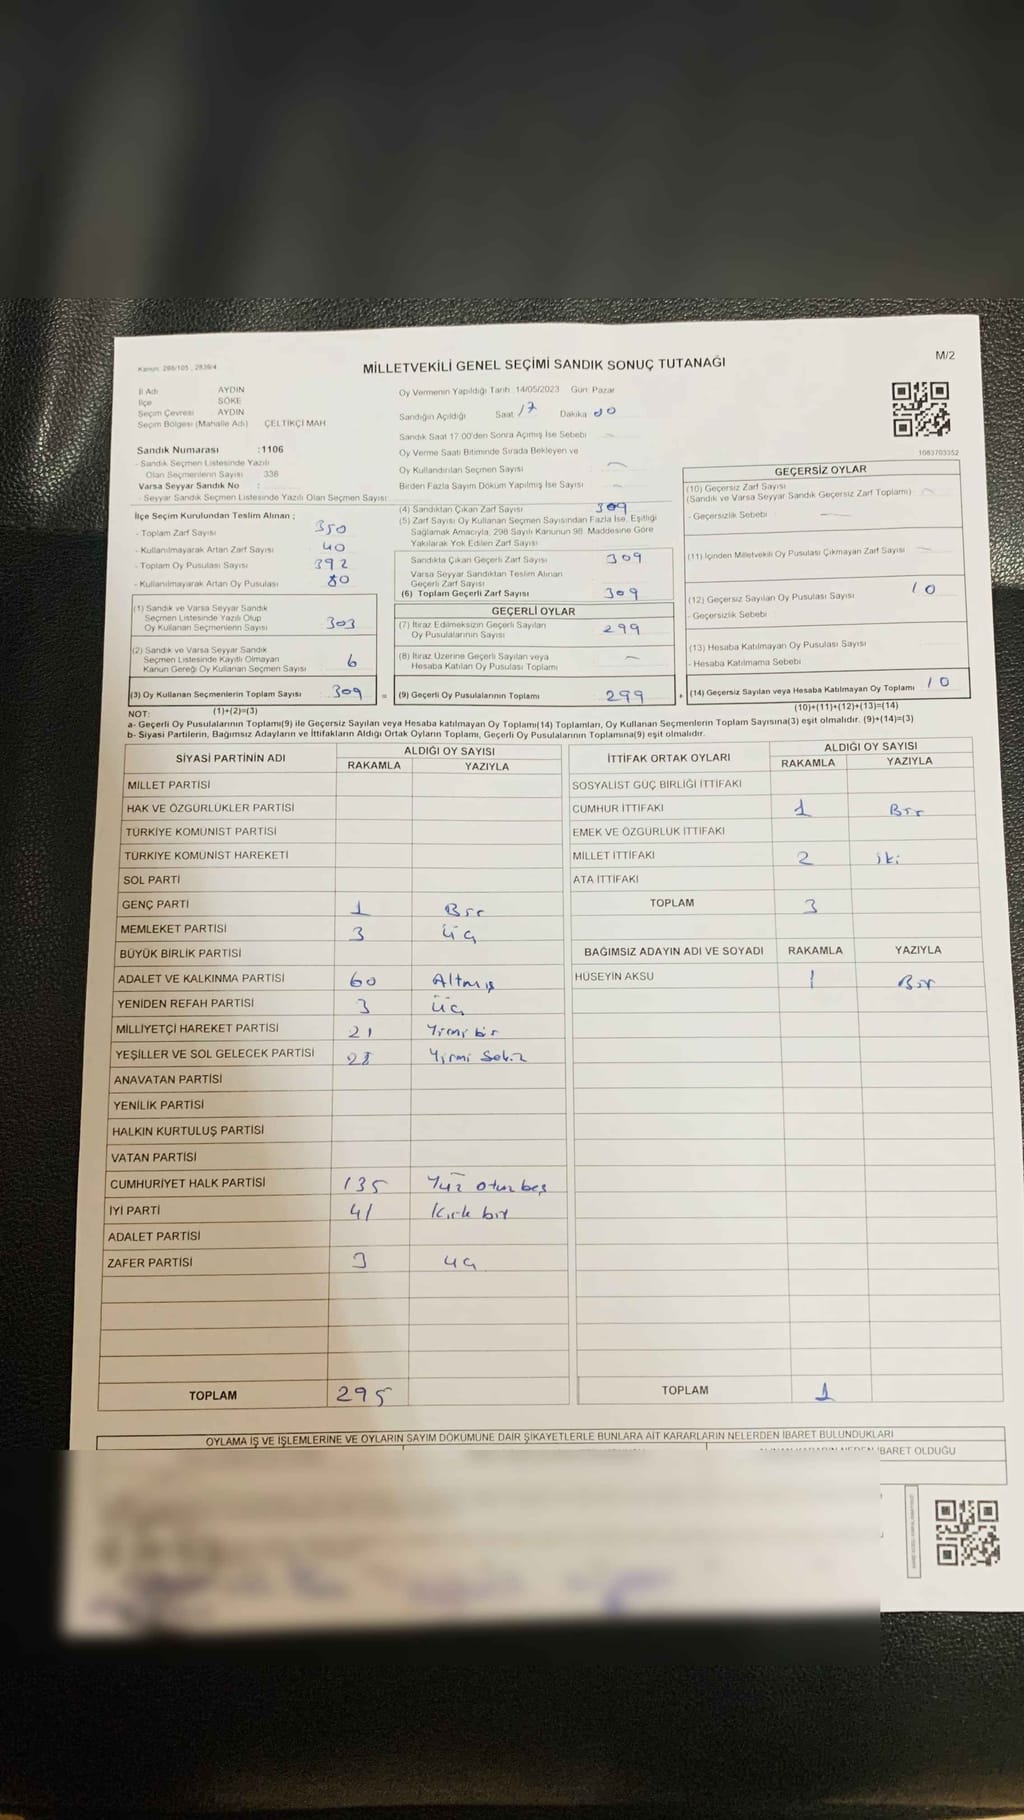 Kanun: 298/105 , 2839/4
MİLLETVEKİLİ GENEL SEÇİMİ SANDIK SONUÇ TUTANAĞI
M/2
İl Adı AYDIN
İlçe SÖKE
Seçim Çevresi AYDIN
Seçim Bölgesi (Mahalle Adı) ÇELTİKÇİ MAH
Sandık Numarası :1106
- Sandık Seçmen Listesinde Yazılı
Olan Seçmenlerin Sayısı : 338
Varsa Seyyar Sandık No :
- Seyyar Sandık Seçmen Listesinde Yazılı Olan Seçmen Sayısı:
Oy Vermenin Yapıldığı Tarih :14/05/2023 Gün: Pazar
Sandığın Açıldığı Saat 17 Dakika 00
Sandık Saat 17:00'den Sonra Açımış İse Sebebi
Oy Verme Saati Bitiminde Sırada Bekleyen ve
Oy Kullandırılan Seçmen Sayısı
Birden Fazla Sayım Döküm Yapılmış İse Sayısı
1083703352
İlçe Seçim Kurulundan Teslim Alınan ;
- Toplam Zarf Sayısı 350
- Kullanılmayarak Artan Zarf Sayısı 40
- Toplam Oy Pusulası Sayısı 392
- Kullanılmayarak Artan Oy Pusulası 80
(1) Sandık ve Varsa Seyyar Sandık
Seçmen Listesinde Yazılı Olup
Oy Kullanan Seçmenlerin Sayısı 303
(2) Sandık ve Varsa Seyyar Sandık
Seçmen Listesinde Kayıtlı Olmayan
Kanun Gereği Oy Kullanan Seçmen Sayısı 6
(3) Oy Kullanan Seçmenlerin Toplam Sayısı 309 =
(1)+(2)=(3)
(4) Sandıktan Çıkan Zarf Sayısı 309
(5) Zarf Sayısı Oy Kullanan Seçmen Sayısından Fazla İse, Eşitliği
Sağlamak Amacıyla, 298 Sayılı Kanunun 98. Maddesine Göre
Yakılarak Yok Edilen Zarf Sayısı
Sandıkta Çıkan Geçerli Zarf Sayısı 309
Varsa Seyyar Sandıktan Teslim Alınan
Geçerli Zarf Sayısı
(6) Toplam Geçerli Zarf Sayısı 309
GEÇERLİ OYLAR
(7) İtiraz Edilmeksizin Geçerli Sayılan
Oy Pusulalarının Sayısı 299
(8) İtiraz Üzerine Geçerli Sayılan veya
Hesaba Katılan Oy Pusulası Toplamı
(9) Geçerli Oy Pusulalarının Toplamı 299 +
GEÇERSİZ OYLAR
(10) Geçersiz Zarf Sayısı
(Sandık ve Varsa Seyyar Sandık Geçersiz Zarf Toplamı)
- Geçersizlik Sebebi
(11) İçinden Milletvekili Oy Pusulası Çıkmayan Zarf Sayısı
(12) Geçersiz Sayılan Oy Pusulası Sayısı 10
- Geçersizlik Sebebi
(13) Hesaba Katılmayan Oy Pusulası Sayısı
- Hesaba Katılmama Sebebi
(14) Geçersiz Sayılan veya Hesaba Katılmayan Oy Toplamı 10
(10)+(11)+(12)+(13)=(14)
NOT:
a- Geçerli Oy Pusulalarının Toplamı(9) ile Geçersiz Sayılan veya Hesaba katılmayan Oy Toplamı(14) Toplamları, Oy Kullanan Seçmenlerin Toplam Sayısına(3) eşit olmalıdır. (9)+(14)=(3)
b- Siyasi Partilerin, Bağımsız Adayların ve İttifakların Aldığı Ortak Oyların Toplamı, Geçerli Oy Pusulalarının Toplamına(9) eşit olmalıdır.
SİYASİ PARTİNİN ADI ALDIĞI OY SAYISI
RAKAMLA YAZIYLA
MİLLET PARTİSİ
HAK VE ÖZGÜRLÜKLER PARTİSİ
TÜRKİYE KOMÜNİST PARTİSİ
TÜRKİYE KOMÜNİST HAREKETİ
SOL PARTİ
GENÇ PARTİ 1 Bir
MEMLEKET PARTİSİ 3 üç
BÜYÜK BİRLİK PARTİSİ
ADALET VE KALKINMA PARTİSİ 60 Altmış
YENİDEN REFAH PARTİSİ 3 üç
MİLLİYETÇİ HAREKET PARTİSİ 21 Yirmi bir
YEŞİLLER VE SOL GELECEK PARTİSİ 28 Yirmi Sekiz
ANAVATAN PARTİSİ
YENİLİK PARTİSİ
HALKIN KURTULUŞ PARTİSİ
VATAN PARTİSİ
CUMHURİYET HALK PARTİSİ 135 Yüz otuz beş
İYİ PARTİ 41 Kırk bir
ADALET PARTİSİ
ZAFER PARTİSİ 3 üç
TOPLAM 295
İTTİFAK ORTAK OYLARI ALDIĞI OY SAYISI
RAKAMLA YAZIYLA
SOSYALİST GÜÇ BİRLİĞİ İTTİFAKI
CUMHUR İTTİFAKI 1 Bir
EMEK VE ÖZGÜRLÜK İTTİFAKI
MİLLET İTTİFAKI 2 iki
ATA İTTİFAKI
TOPLAM 3
BAĞIMSIZ ADAYIN ADI VE SOYADI RAKAMLA YAZIYLA
HÜSEYİN AKSU 1 Bir
TOPLAM 1
OYLAMA İŞ VE İŞLEMLERİNE VE OYLARIN SAYIM DÖKÜMÜNE DAİR ŞİKAYETLERLE BUNLARA AİT KARARLARIN NELERDEN İBARET BULUNDUKLARI
İBARET OLDUĞU